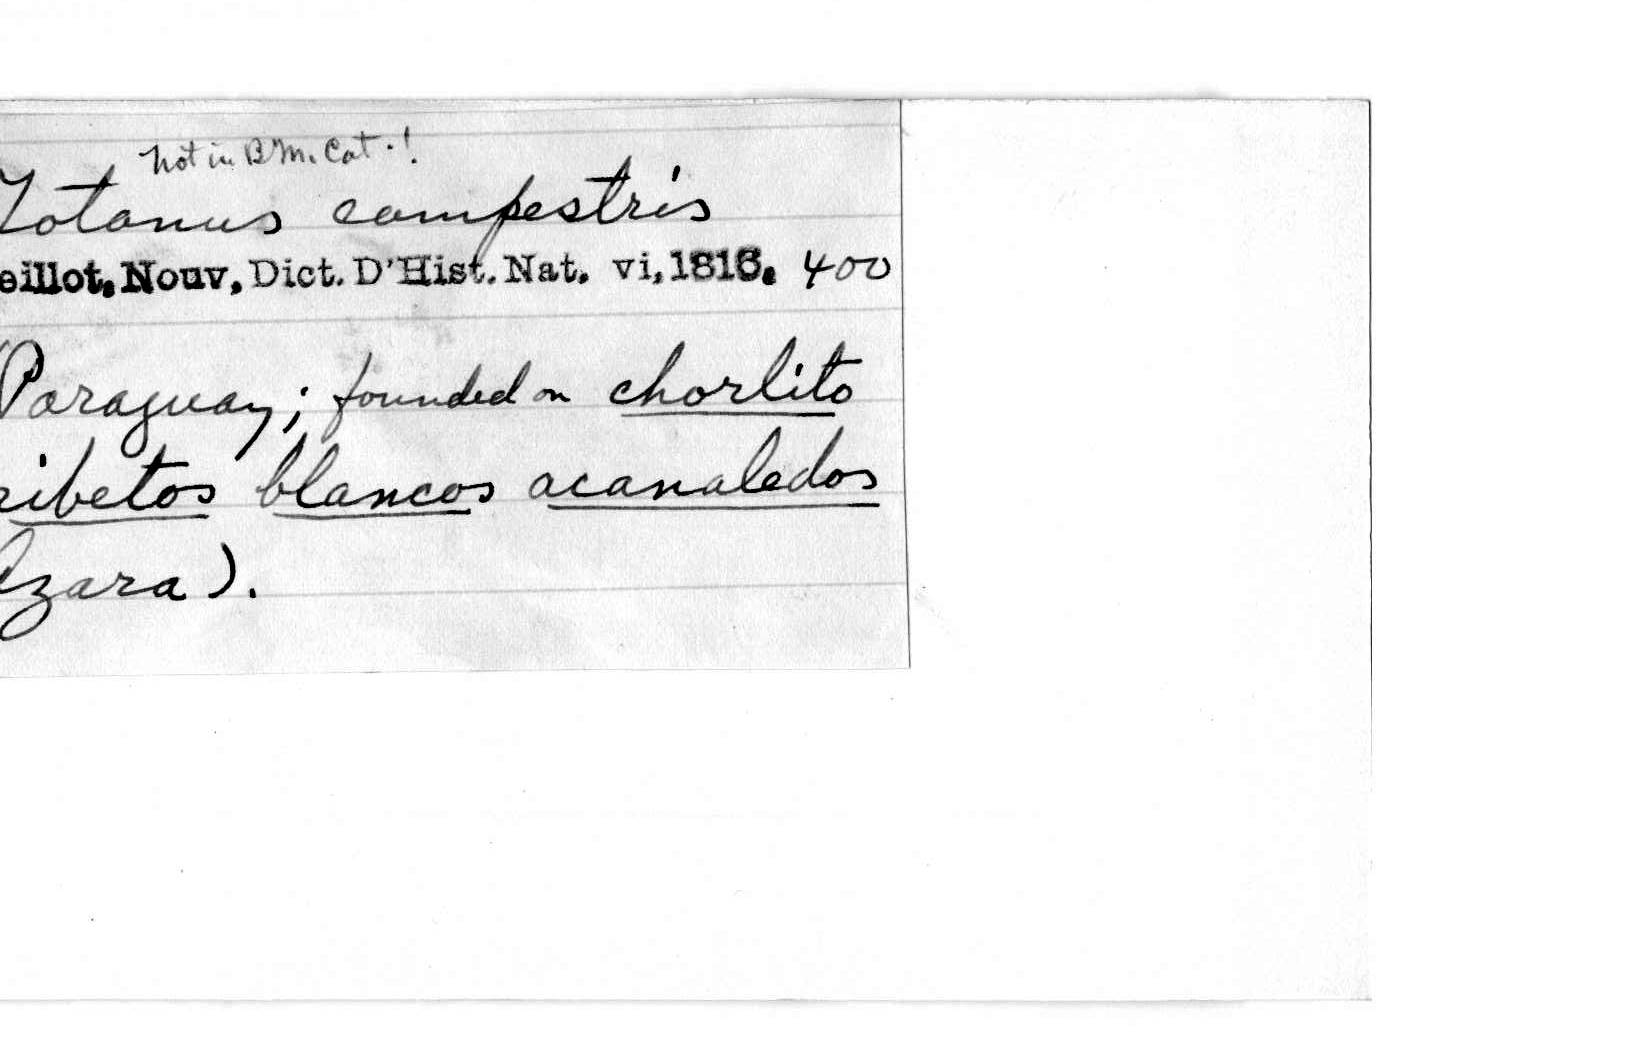 not in B.M. Cat.!
Totanus campestris
eillot, Nouv. Dict. D'Hist. Nat. vi, 1816. 400
Paraguay; founded on chorlito
ribetos blancos acanalados
Azara).